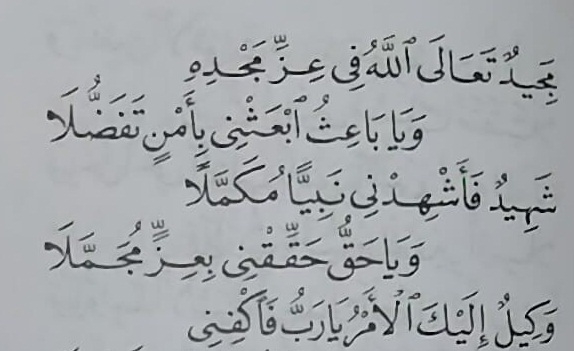 مَجِيدٌ تَعَالَى ٱللَّهُ فِى عِزِّ مَجْدِهِ
وَيَا بَاعِثُ ٱبْعَثْنِى بِأَمْنٍ تَفَضُّلَا
شَهِيدٌ فَأَشْهِدْنِى نَبِيًّا مُكَمَّلًا
وَيَا حَقُّ حَقِّقْنِى بِعِزٍّ مُجَمَّلَا
وَكِيلٌ إِلَيْكَ ٱلْأَمْرُ يَا رَبُّ فَٱكْفِنِى